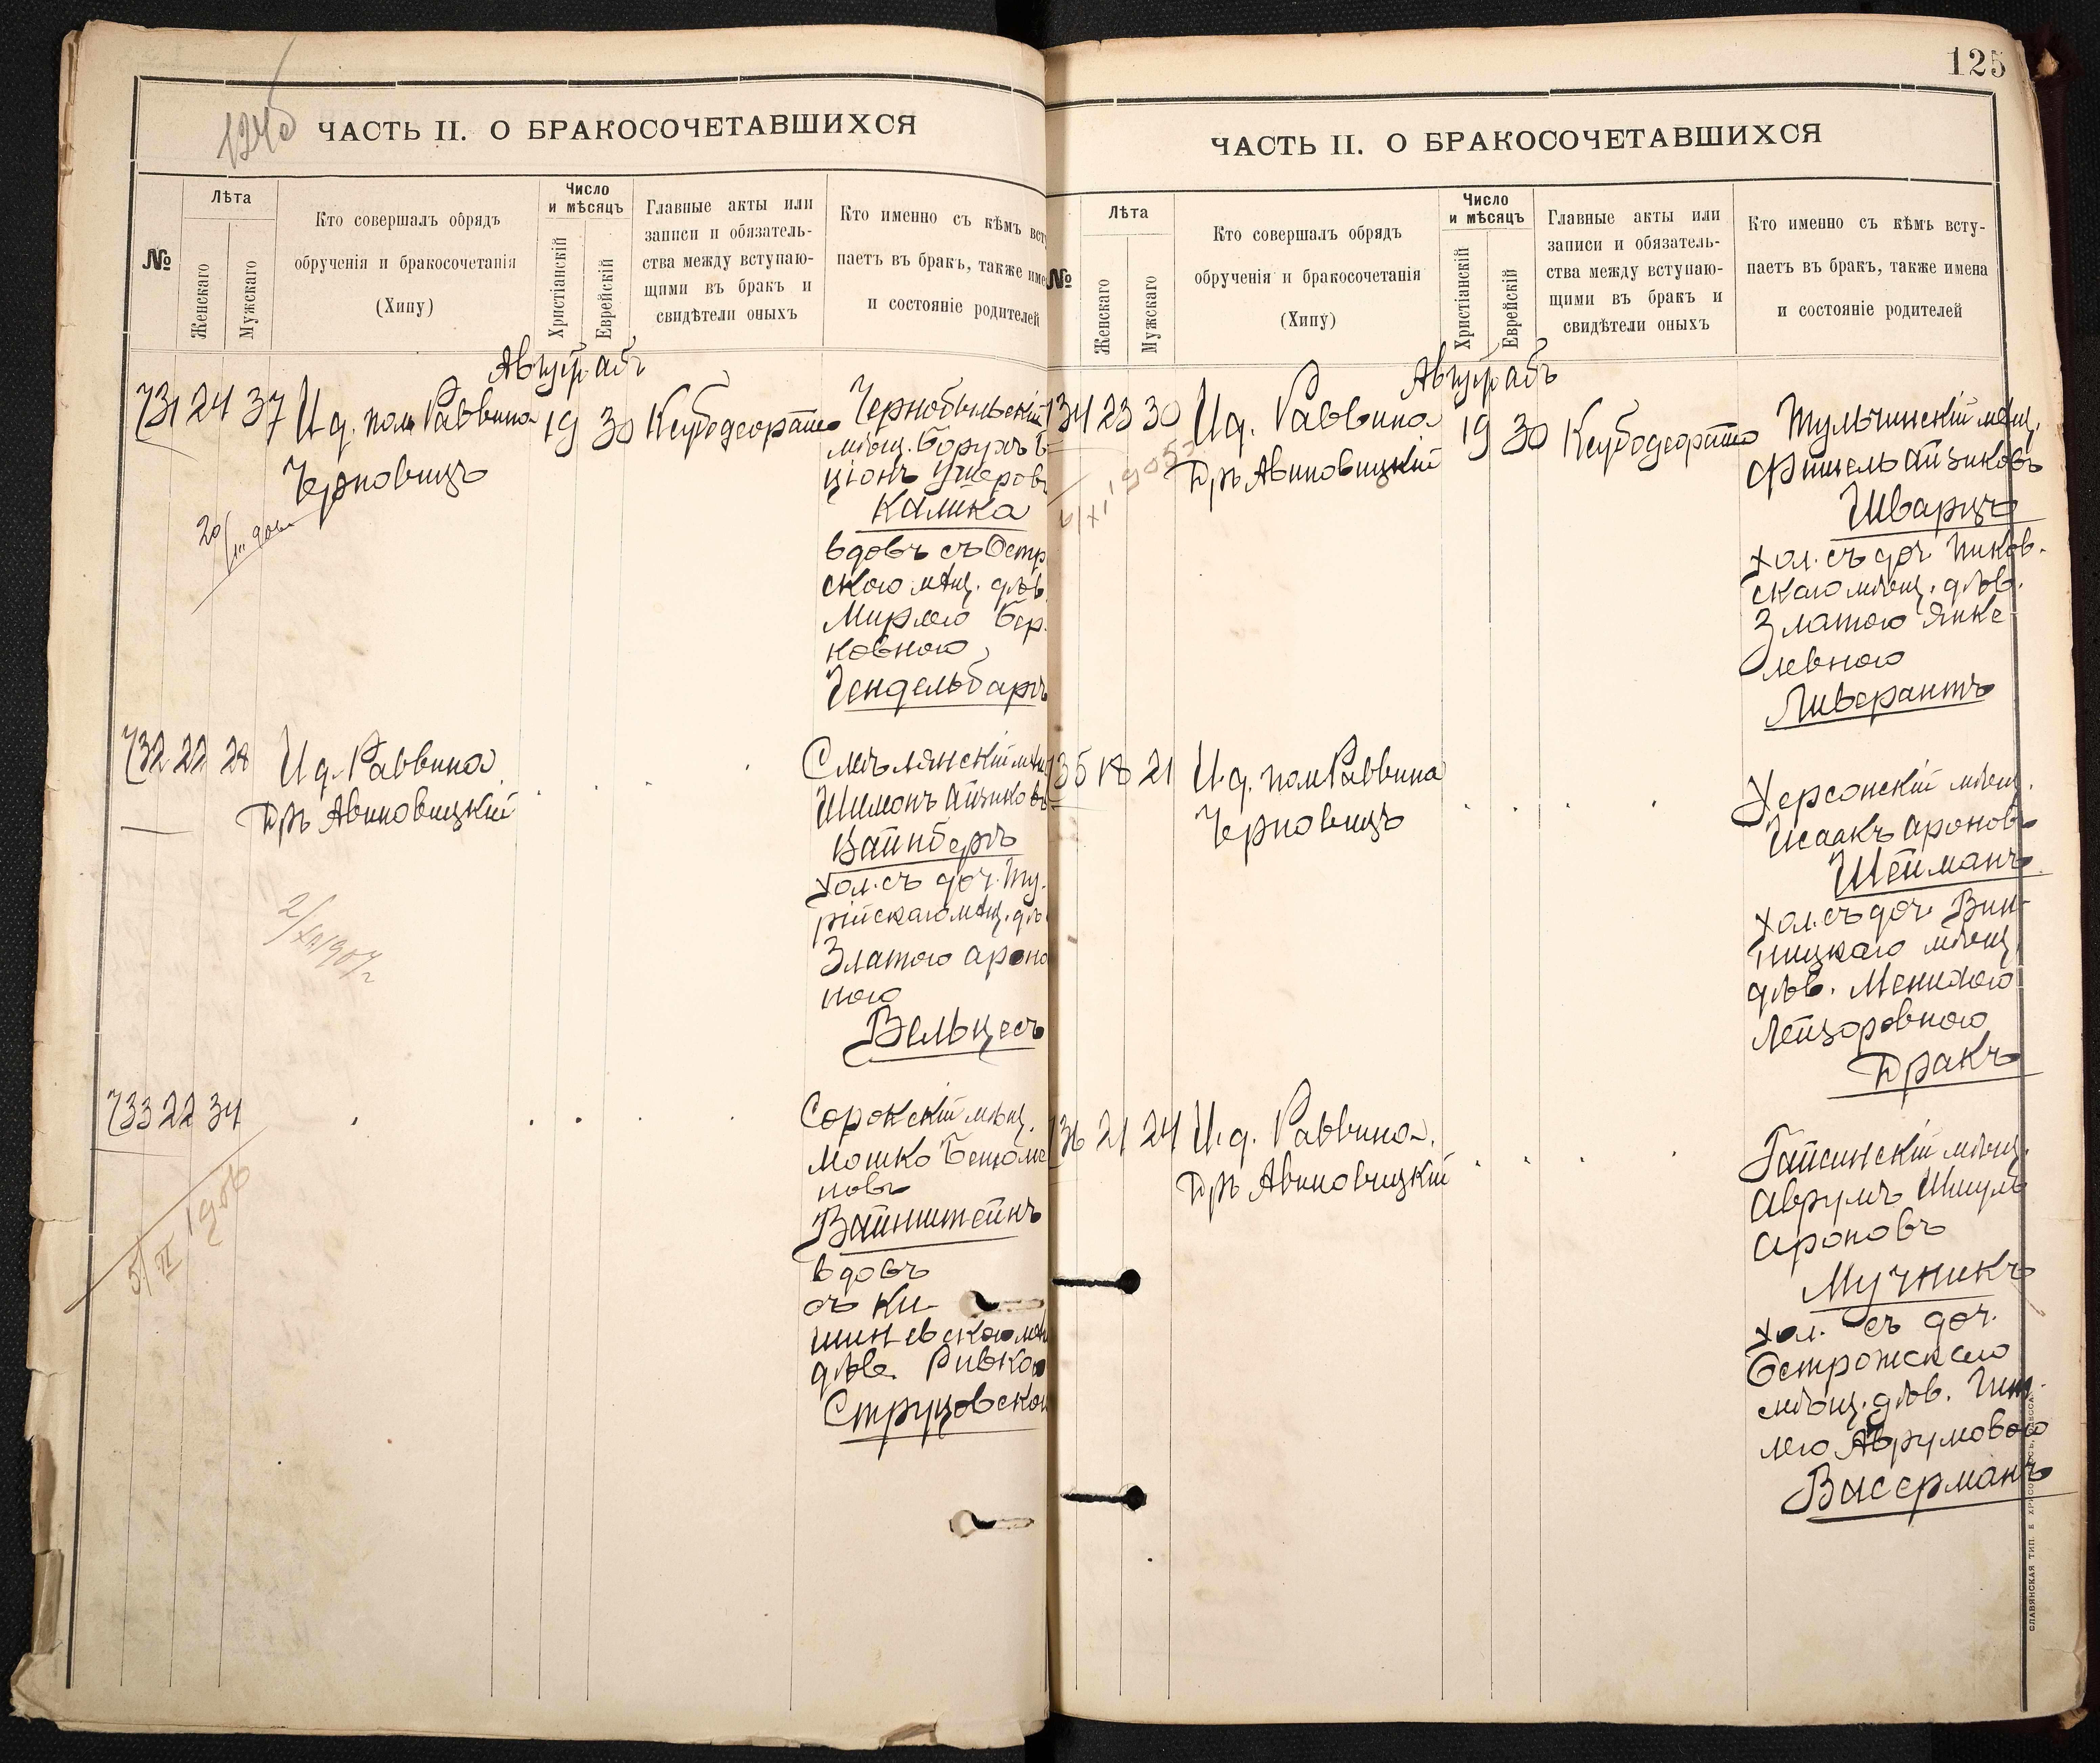 124об
ЧАСТЬ II. О БРАКОСОЧЕТАВШИХСЯ
№
Лѣта
Женскаго
Мужскаго
Кто совершалъ обрядъ
обрученія и бракосочетанія
(Хипу)
Число
и мѣсяцъ
Христіанскій
Еврейскій
Главные акты или
записи и обязатель-
ства между вступаю-
щими въ бракъ и
свидѣтели оныхъ
Кто именно съ кѣмъ всту
паетъ въ бракъ, также име
и состояніе родителей
Август абъ
731 24 37 И д. пом Раввина
Черновицъ
19 30
Чернобыльскій
мѣщ. Борухъ Б
ціонъ Ушеров
Калика
вдовъ съ Остр
ского мѣщ. дѣв
Мирлею Бер
ковною
Гендельбаргъ
732 22 28 И д. Раввина
Дръ Авиновицкій
2/XII 1907 г
Смѣлянскій мѣщ
Шимонъ Айзиковъ
Вайнбергъ
хол. съ доч. Ту
рійскаго мѣщ. дѣ
Златою Ароно
ною
Вельцесъ
733 22 34
5/II 1906
Сорокскій мѣщ.
Мошко
новъ
Вайнштейнъ
вдовъ
съ Ки
шиневского мѣщ
дѣв. Ривкою
Струцовской
125
ЧАСТЬ II. О БРАКОСОЧЕТАВШИХСЯ
№
Лѣта
Женскаго
Мужскаго
Кто совершалъ обрядъ
обрученія и бракосочетанія
(Хипу)
Число
и мѣсяцъ
Христіанскій
Еврейскій
Главные акты или
записи и обязатель-
ства между вступаю-
щими въ бракъ и
свидѣтели оныхъ
Кто именно съ кѣмъ всту-
паетъ въ бракъ, также имена
и состояніе родителей
Август абъ
34 23 30 И д. Раввина
Дръ Авиновицкій
19 30
Тульчинскій мѣщ.
Фишель Айзиковъ
Шварцъ
хол. съ доч Пиков-
скаго мѣщ. дѣв.
Златою Янке
левною
Ливерантъ
35 18 21 И.д. пом Раввина
Черновицъ
Херсонскій мѣщ.
Исаакъ Ароновъ
Шейманъ
хол. съ доч. Вин-
ницкаго мѣщ
дѣв. Менихою
Лейзоровною
Дракъ
36 21 24 И.д. Раввина.
Дръ Авиновицкій
Гайсинскій мѣщ.
Аврумъ Шмуль
Ароновъ
Мучникъ
хол. съ доч.
Острожскаго
мѣщ. дѣв. Гит
лею Аврумовою
Васерманъ